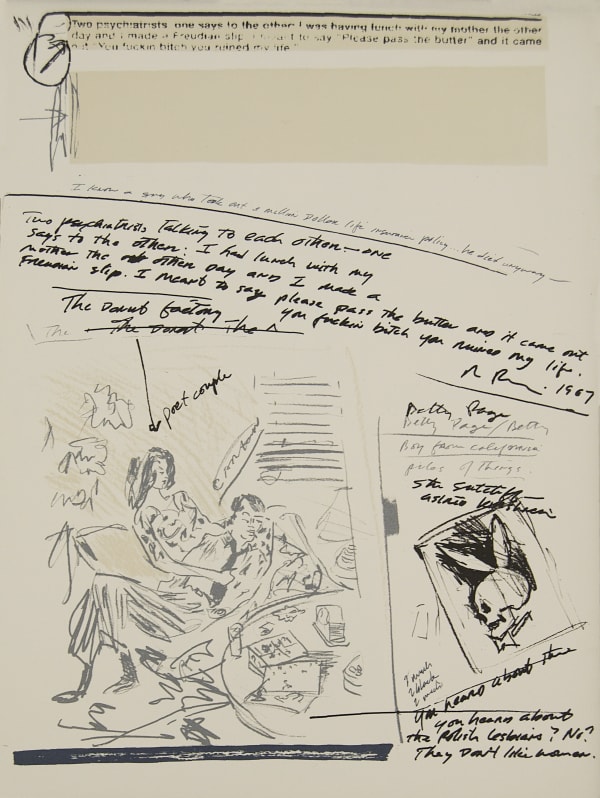 Two psychiatrists, one says to the other: I was having lunch with my mother the other
day and I made a Freudian slip, I meant to say "Please pass the butter" and it came
out "You fuckin bitch you ruined my life."
I know a guy who took out a million Dollar life insurance policy... he died anyway
Two psychiatrists Talking to each other — one
says to the other: I had lunch with my
mother the other day and I made a
Freudian slip. I meant to say please pass the butter and it came out
you fuckin bitch you ruined my life.
1967
The Donut factory
The The Donut The
poet couple
Betty Page
Betty Page/Betty
Boy from California
piles of things.
Stu Sutcliffe
You heard about the
you heard about
the Polish lesbians? No?
They Don't like women.